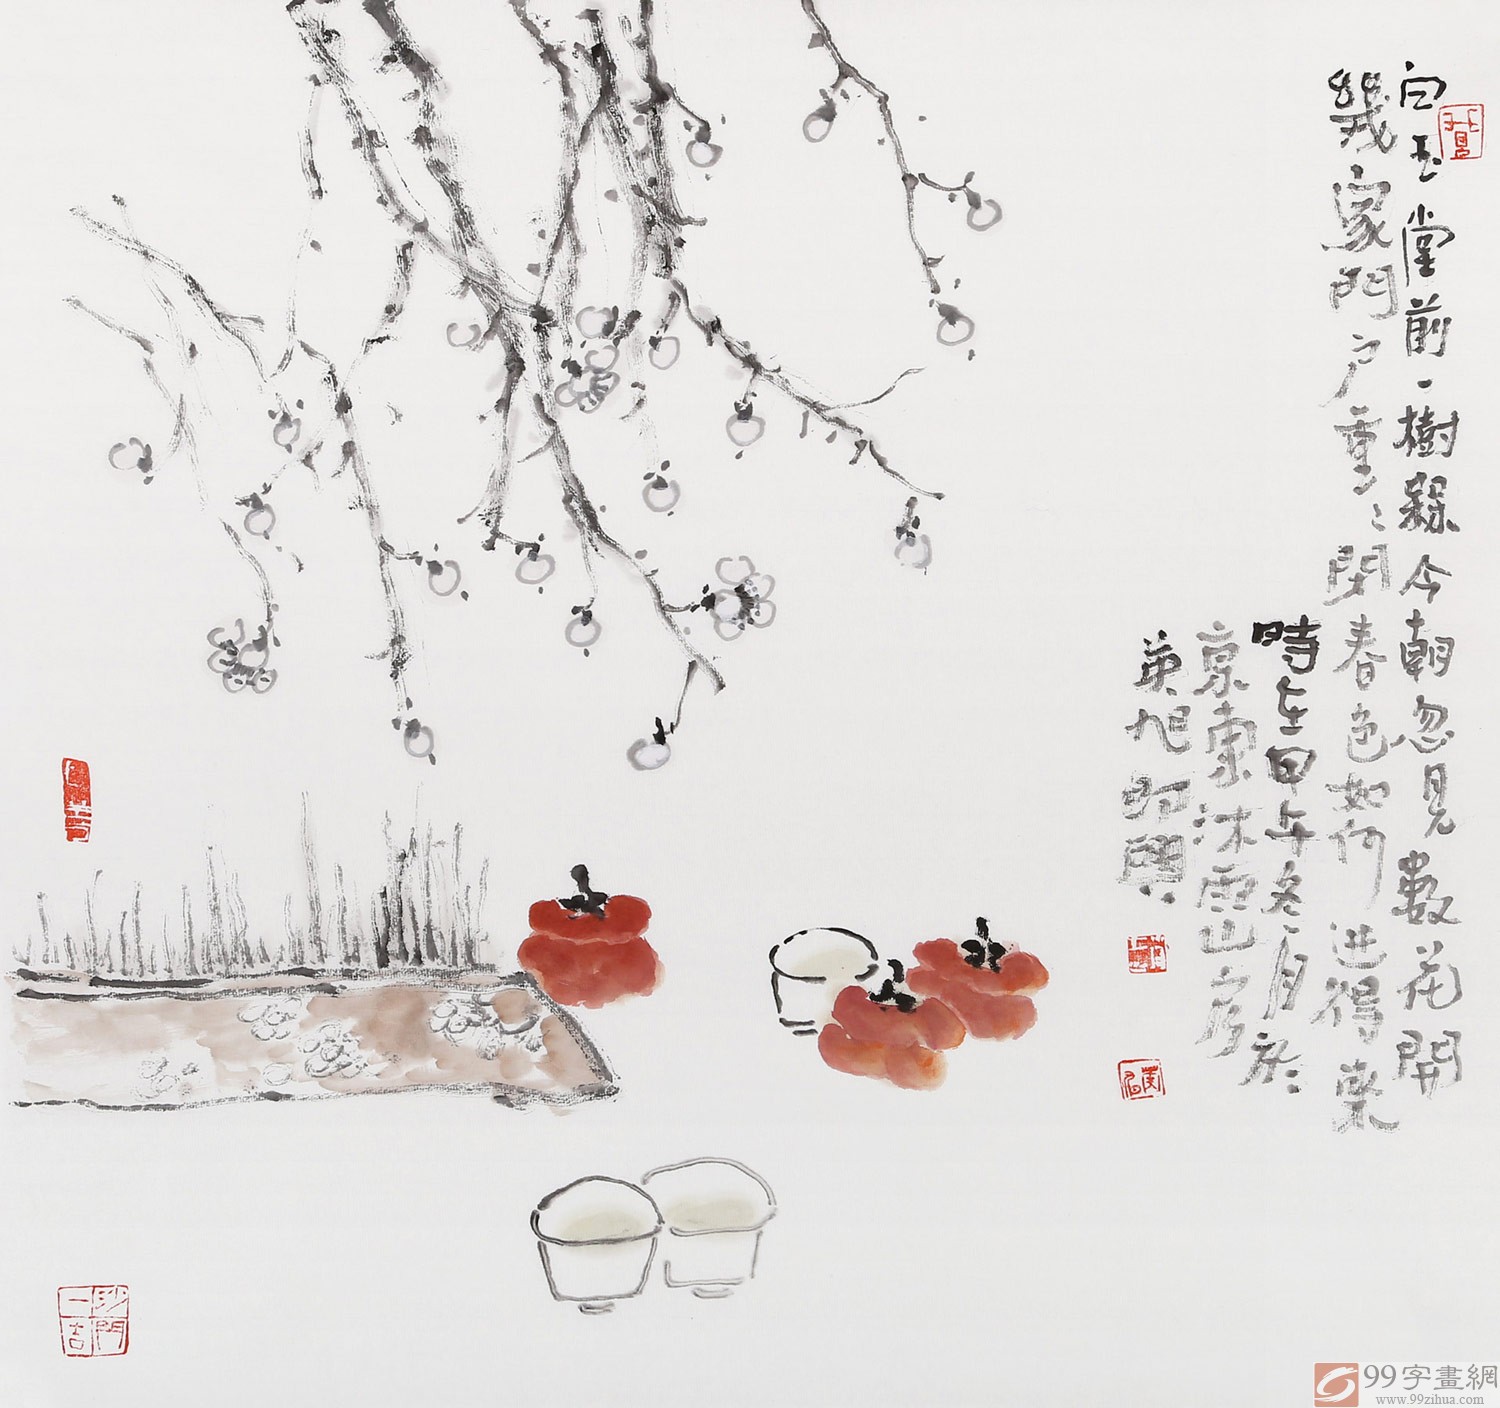 白玉堂前一樹槑今朝忽見數花開
幾家門户重〻閉春色如何進得來
時在甲午冬月於
京東沐雨山房
英旭
沙門
99字畫網
www.99zihua.com